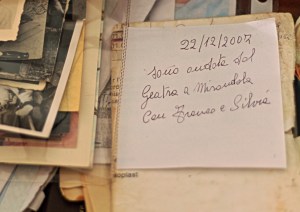 22/12/2007
sono andata dal
Geatra a Mirandola
con Franco e Silvia